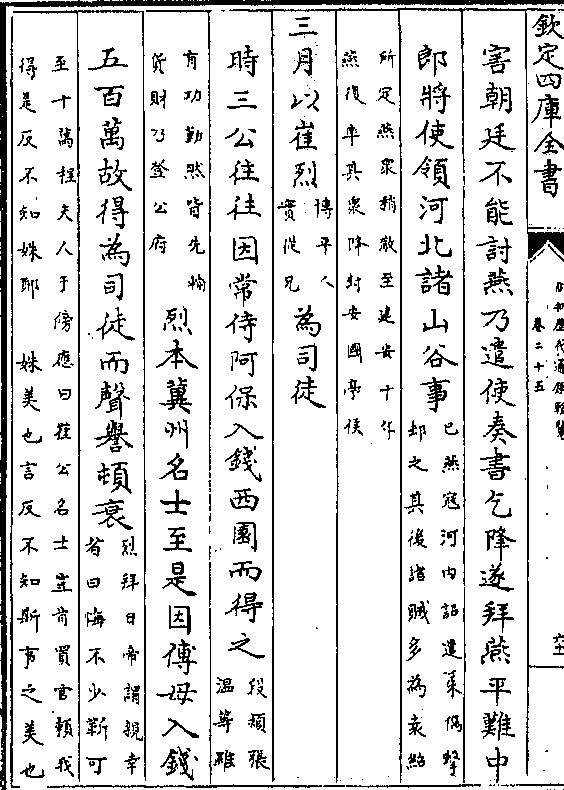 欽定四庫全書
卷二十五
害朝廷不能討燕乃遣使奏書乞降遂拜燕平難中
郎將使領河北諸山谷事
已燕寇河內詔遣朱儁擊
却之其後諸賊多為袁紹
所定燕衆稍散至建安十年
燕復率其衆降封安國亭侯
三月以崔烈
博平人
寔從兄
為司徒
時三公往往因常侍阿保入錢西園而得之
段熲張
溫等雖
有功勤然皆先輸
貨財乃登公府
烈本冀州名士至是因傅母入錢
五百萬故得為司徒而聲譽頓衰
烈拜日帝謂親幸
者曰悔不少靳可
至十萬程夫人于傍應曰崔公名士豈肯買官賴我
得是反不知姝耶
姝美也言反不知斯事之美也